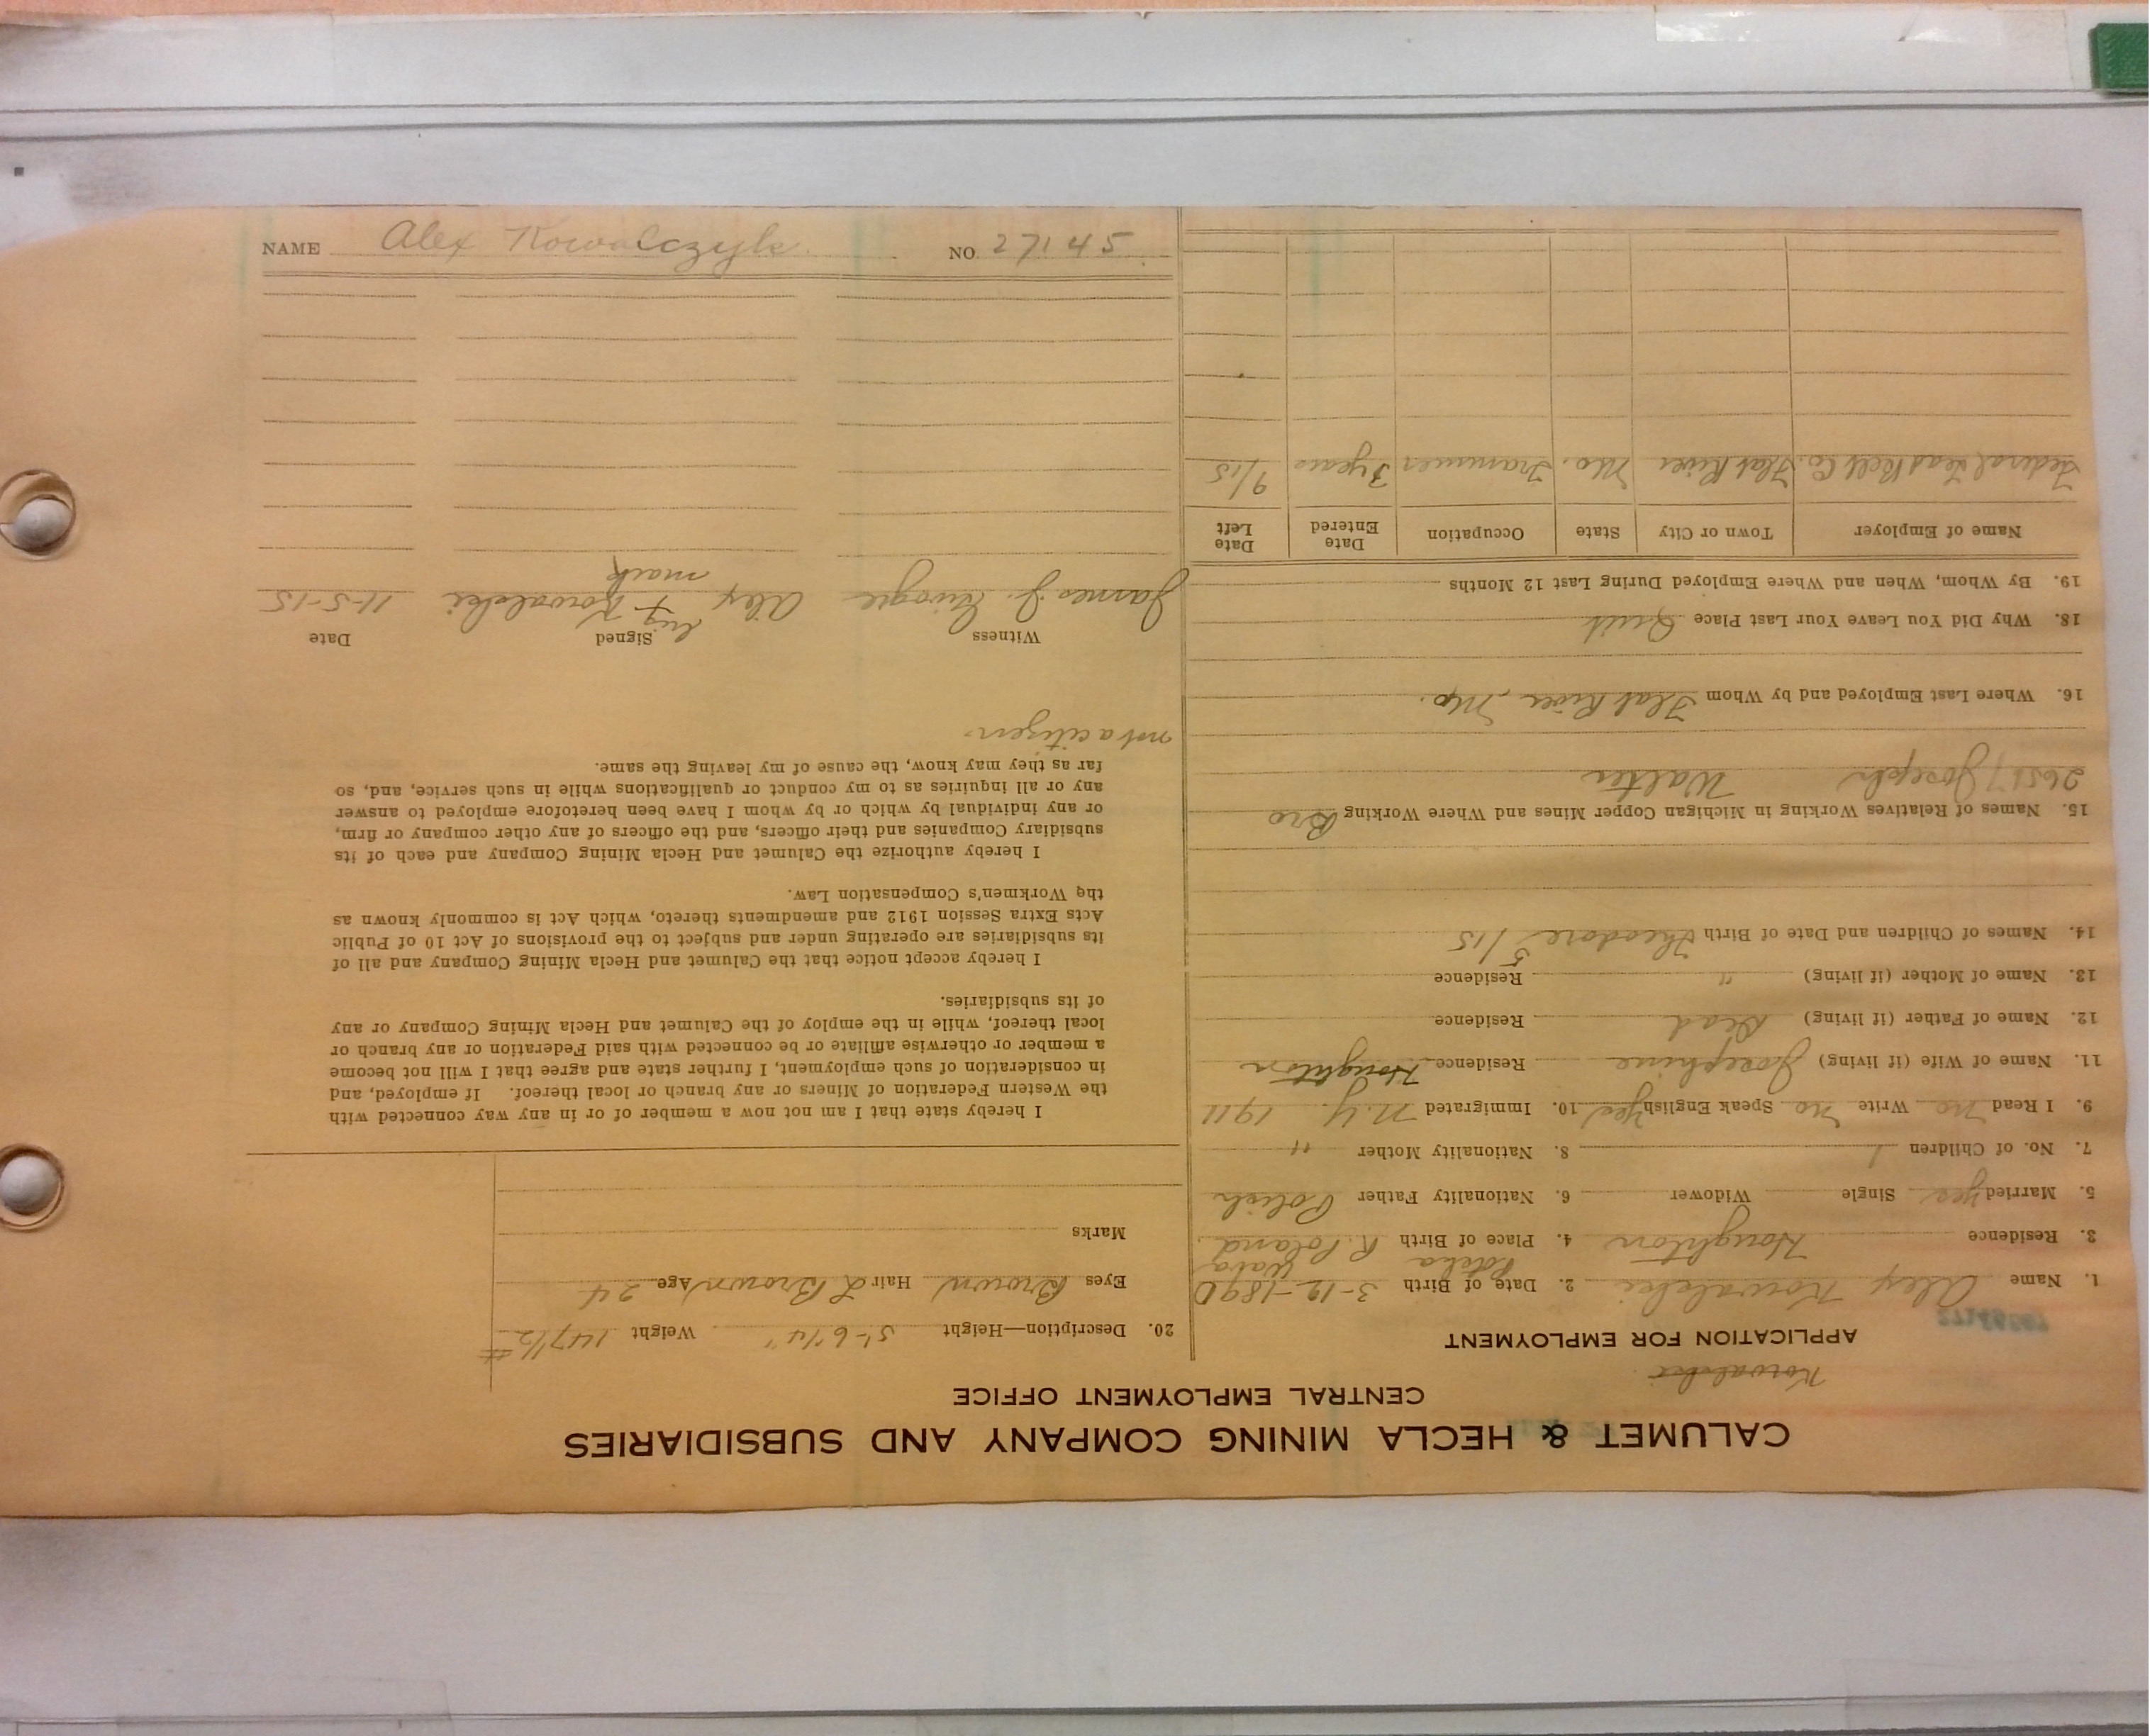 CALUMET & HECLA MINING COMPANY AND SUBSIDIARIES
CENTRAL EMPLOYMENT OFFICE
Kowalski
APPLICATION FOR EMPLOYMENT
1. Name Alex Kowalski 2. Date of Birth 3-12-1890
3. Residence Houghton 4. Place of Birth R. Poland
5. Married yes Single Widower 6. Nationality Father Polish
7. No. of Children 1 8. Nationality Mother "
9. I Read no Write no Speak English yes 10. Immigrated N.Y. 1911
11. Name of Wife (if living) Josephine Residence Houghton
12. Name of Father (if living) Dead Residence
13. Name of Mother (if living) " Residence
14. Names of Children and Date of Birth Theodore 5/15
15. Names of Relatives Working in Michigan Copper Mines and Where Working Bro
Joseph Walter
16. Where Last Employed and by Whom Flat River, Mo.
18. Why Did You Leave Your Last Place Quit
19. By Whom, When and Where Employed During Last 12 Months
Name of Employer Town or City State Occupation Date Entered Date Left
Federal Lead Co. Flat River Mo. Trammer 3 years 9/15
20. Description—Height 5'-6 1/4" Weight 147 1/2 #
Eyes Brown Hair L Brown Age 24
Marks
I hereby state that I am not now a member of or in any way connected with
the Western Federation of Miners or any branch or local thereof. If employed, and
in consideration of such employment, I further state and agree that I will not become
a member or otherwise affiliate or be connected with said Federation or any branch or
local thereof, while in the employ of the Calumet and Hecla Mining Company or any
of its subsidiaries.
I hereby accept notice that the Calumet and Hecla Mining Company and all of
its subsidiaries are operating under and subject to the provisions of Act 10 of Public
Acts Extra Session 1912 and amendments thereto, which Act is commonly known as
the Workmen's Compensation Law.
I hereby authorize the Calumet and Hecla Mining Company and each of its
subsidiary Companies and their officers, and the officers of any other company or firm,
or any individual by which or by whom I have been heretofore employed to answer
any or all inquiries as to my conduct or qualifications while in such service, and, so
far as they may know, the cause of my leaving the same.
not a citizen
Witness Signed Date
his
James J. Alex + Kowalski 11-5-15
mark
NAME Alex Kowalczyk NO. 27145